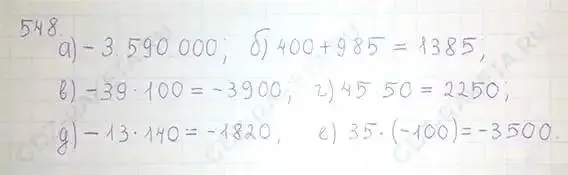 548.
а) -3 590 000; б) 400 + 985 = 1385;
в) -39 · 100 = -3900; г) 45 50 = 2250;
д) -13 · 140 = -1820, е) 35 · (-100) = -3500.